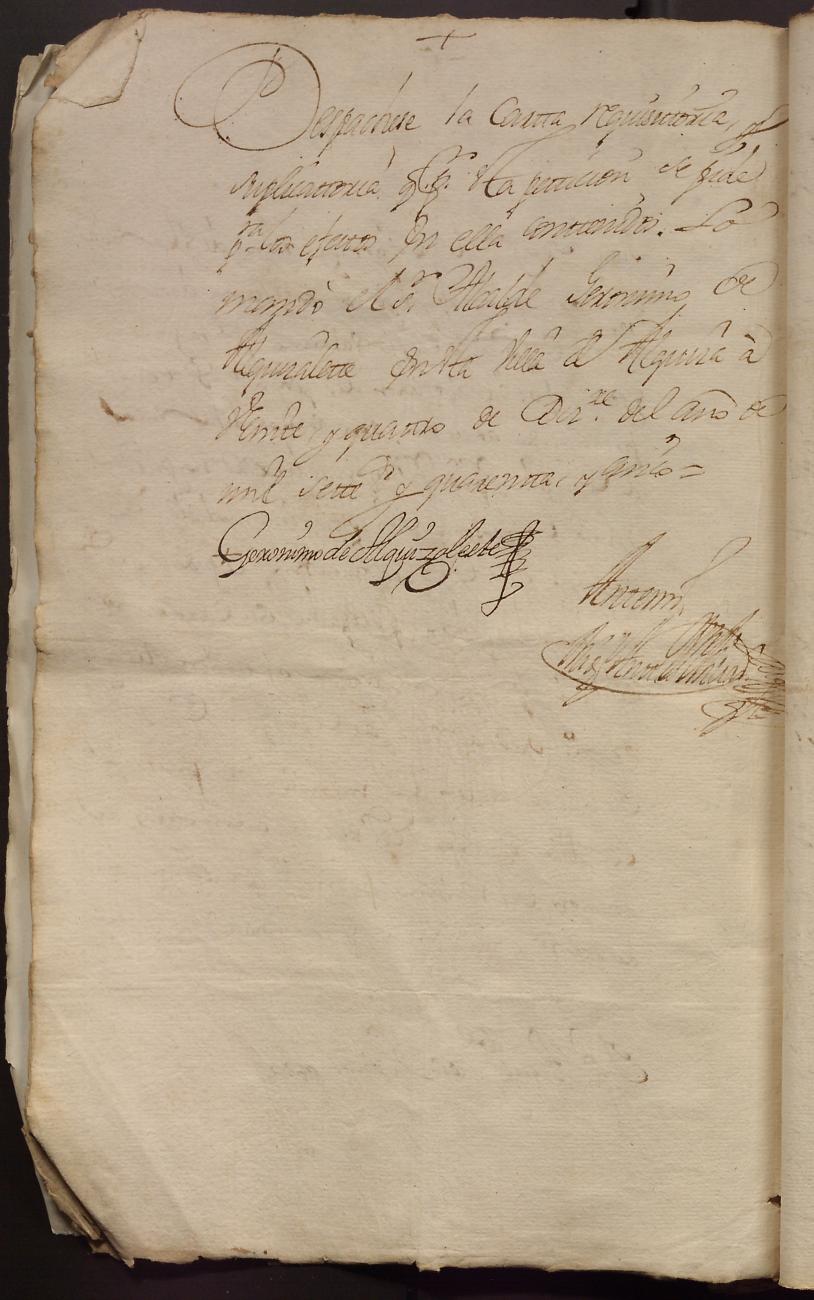 +
Despachese la Carta requisitoria, y
suplicatoria, q̃ p.r esta peticion se pide
p.ra los efectos en ella contenidos. Lo
mandò el s.r Alcalde Geronimo de
Alquizalete en esta villa de Alquiza à
veinte y quatro de Diz.re del año de
mil sette.s y quarenta, y cinco =
Geronimo de Alquizalete
Antemi